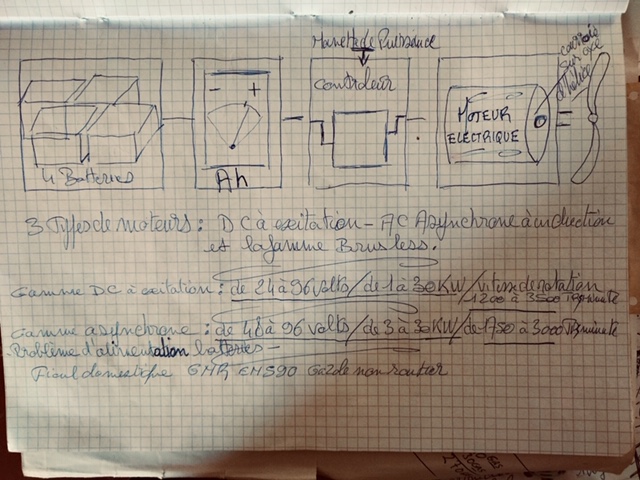 Manette de Puissance
controleur
courroie
sur axe
d'hélice
- +
MOTEUR
ELECTRIQUE
4 Batteries
Ah
3 Types de moteurs : DC à exitation - AC Asynchrone à induction
et la famme Brusless.
Gamme DC à exitation : de 24 à 96 volts / de 1 à 30 KW / vitesse de rotation
1200 à 3500 Trs minute
Gamme asynchrone : de 48 à 96 volts / de 3 à 30 KW / de 1750 à 3000 Trs minute
Problème d'alimentation batteries -
Fioul domestique GNR EN590 Gazole non routier